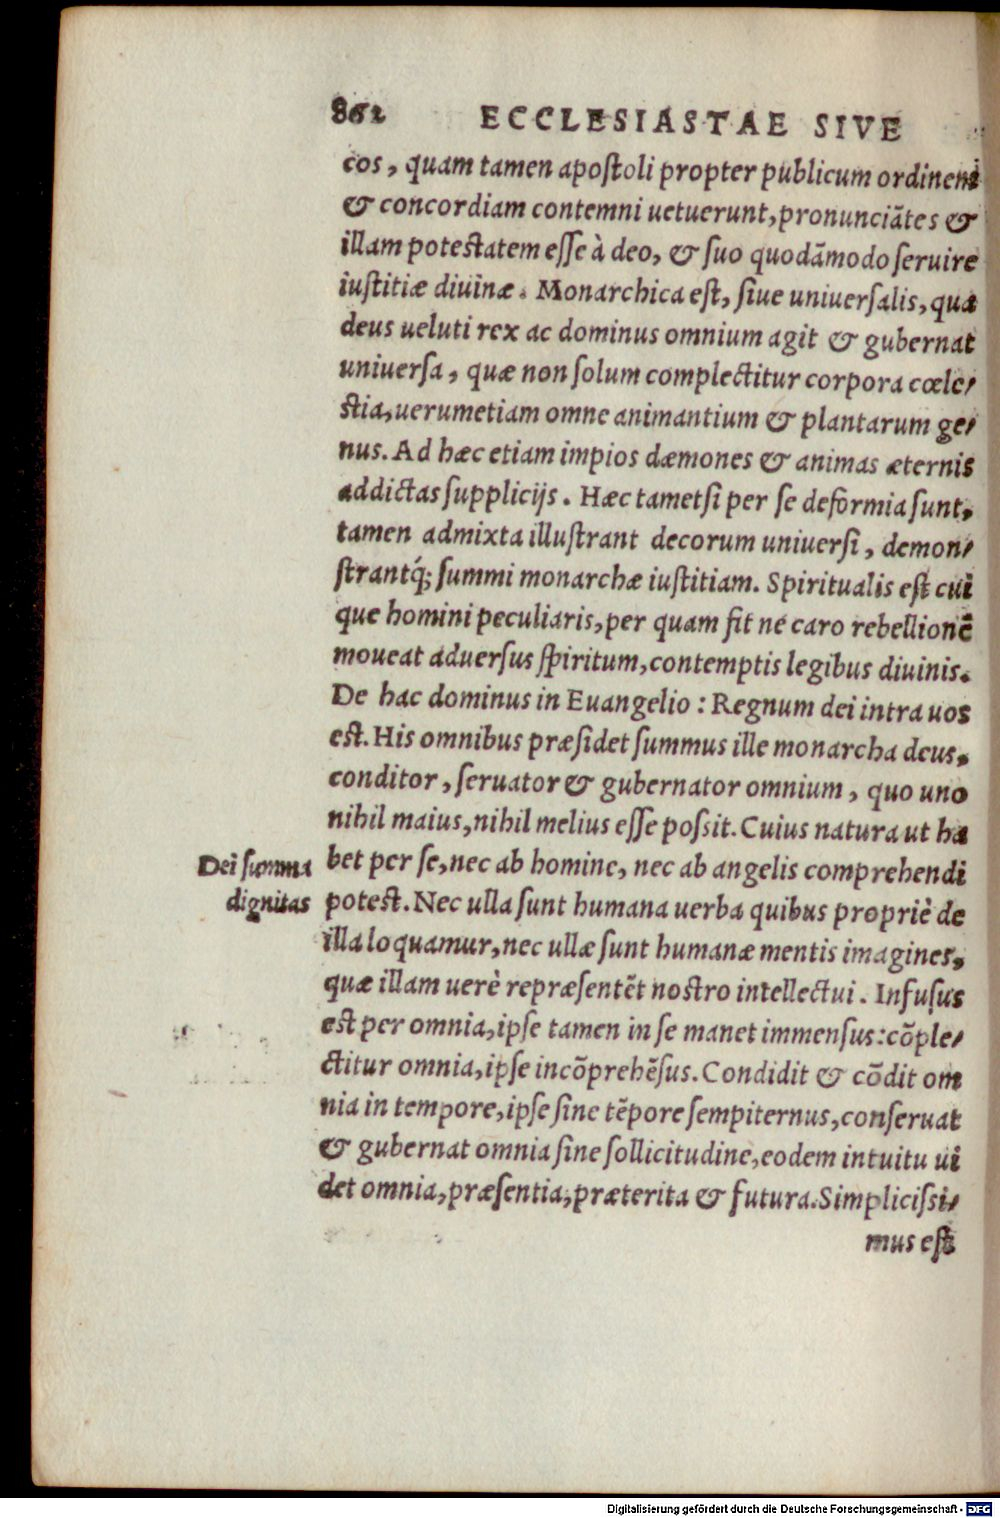 862 ECCLESIASTAE SIVE
cos, quam tamen apoſtoli propter publicum ordinem
& concordiam contemni uetuerunt, pronunciãtes &
illam poteſtatem eſſe à deo, & ſuo quodãmodo ſeruire
iuſtitiæ diuinæ. Monarchica eſt, ſiue uniuerſalis, qua
deus ueluti rex ac dominus omnium agit & gubernat
uniuerſa, quæ non ſolum complectitur corpora cœle/
ſtia, uerumetiam omne animantium & plantarum ge/
nus. Ad hæc etiam impios dæmones & animas æternis
addictas ſupplicijs. Hæc tametſi per ſe deformia ſunt,
tamen admixta illuſtrant decorum uniuerſi, demon/
ſtrantq́; ſummi monarchæ iuſtitiam. Spiritualis eſt cui
que homini peculiaris, per quam fit ne caro rebellionẽ
moueat aduerſus ſpiritum, contemptis legibus diuinis.
De hac dominus in Euangelio : Regnum dei intra uos
eſt. His omnibus præſidet ſummus ille monarcha deus,
conditor, ſeruator & gubernator omnium, quo uno
nihil maius, nihil melius eſſe poſsit. Cuius natura ut ha
Dei ſumma
dignitas
bet per ſe, nec ab homine, nec ab angelis comprehendi
poteſt. Nec ulla ſunt humana uerba quibus propriè de
illa loquamur, nec ullæ ſunt humanæ mentis imagines,
quæ illam uerè repræſentẽt noſtro intellectui. Infuſus
eſt per omnia, ipſe tamen in ſe manet immenſus: cõple/
ctitur omnia, ipſe incõprehẽſus. Condidit & cõdit om
nia in tempore, ipſe ſine tẽpore ſempiternus, conſeruat
& gubernat omnia ſine ſollicitudine, eodem intuitu ui
det omnia, præſentia, præterita & futura. Simpliciſsi/
mus eſt
Digitalisierung gefördert durch die Deutsche Forschungsgemeinschaft - DFG